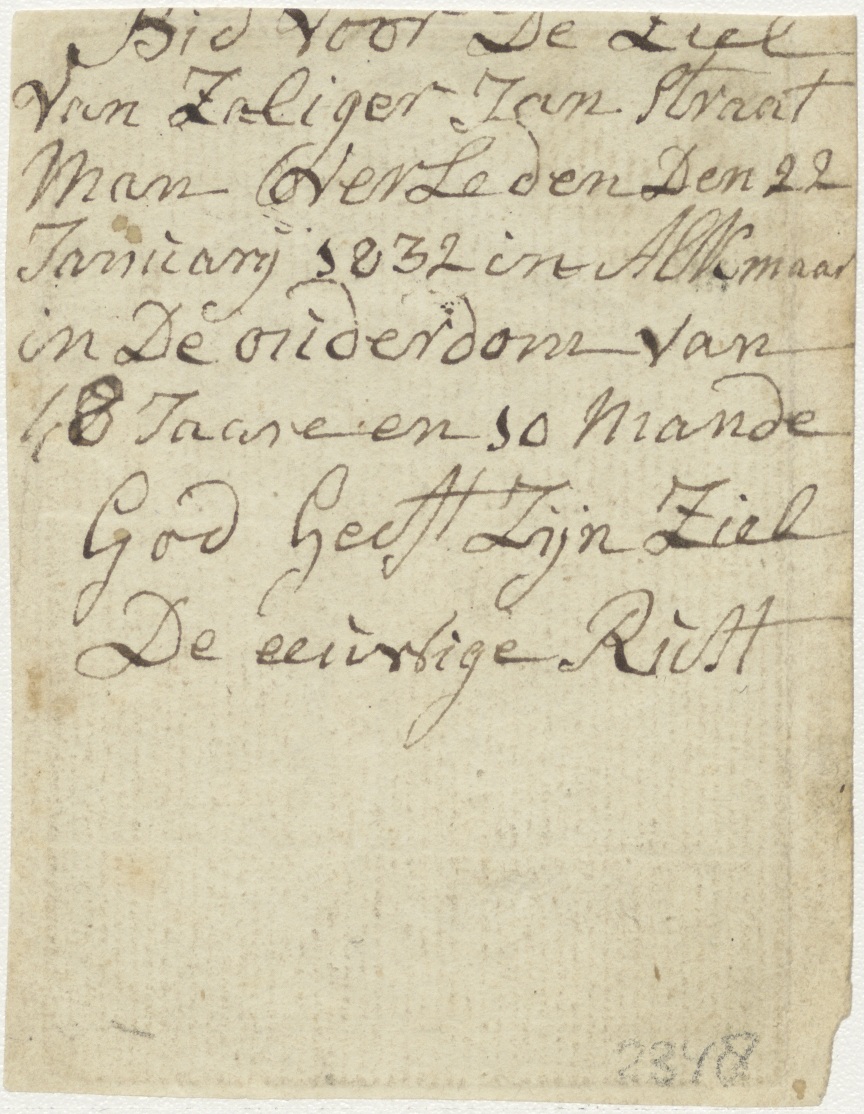 Bid Voor De Ziel
Van Zaliger Jan Straat
Man OverLeden Den 22
Januarij 1832 in Alkmaar
in De ouderdom van
48 Jaare en 10 Mande
God Geeft Zijn Ziel
De eeuwige Rust
2348